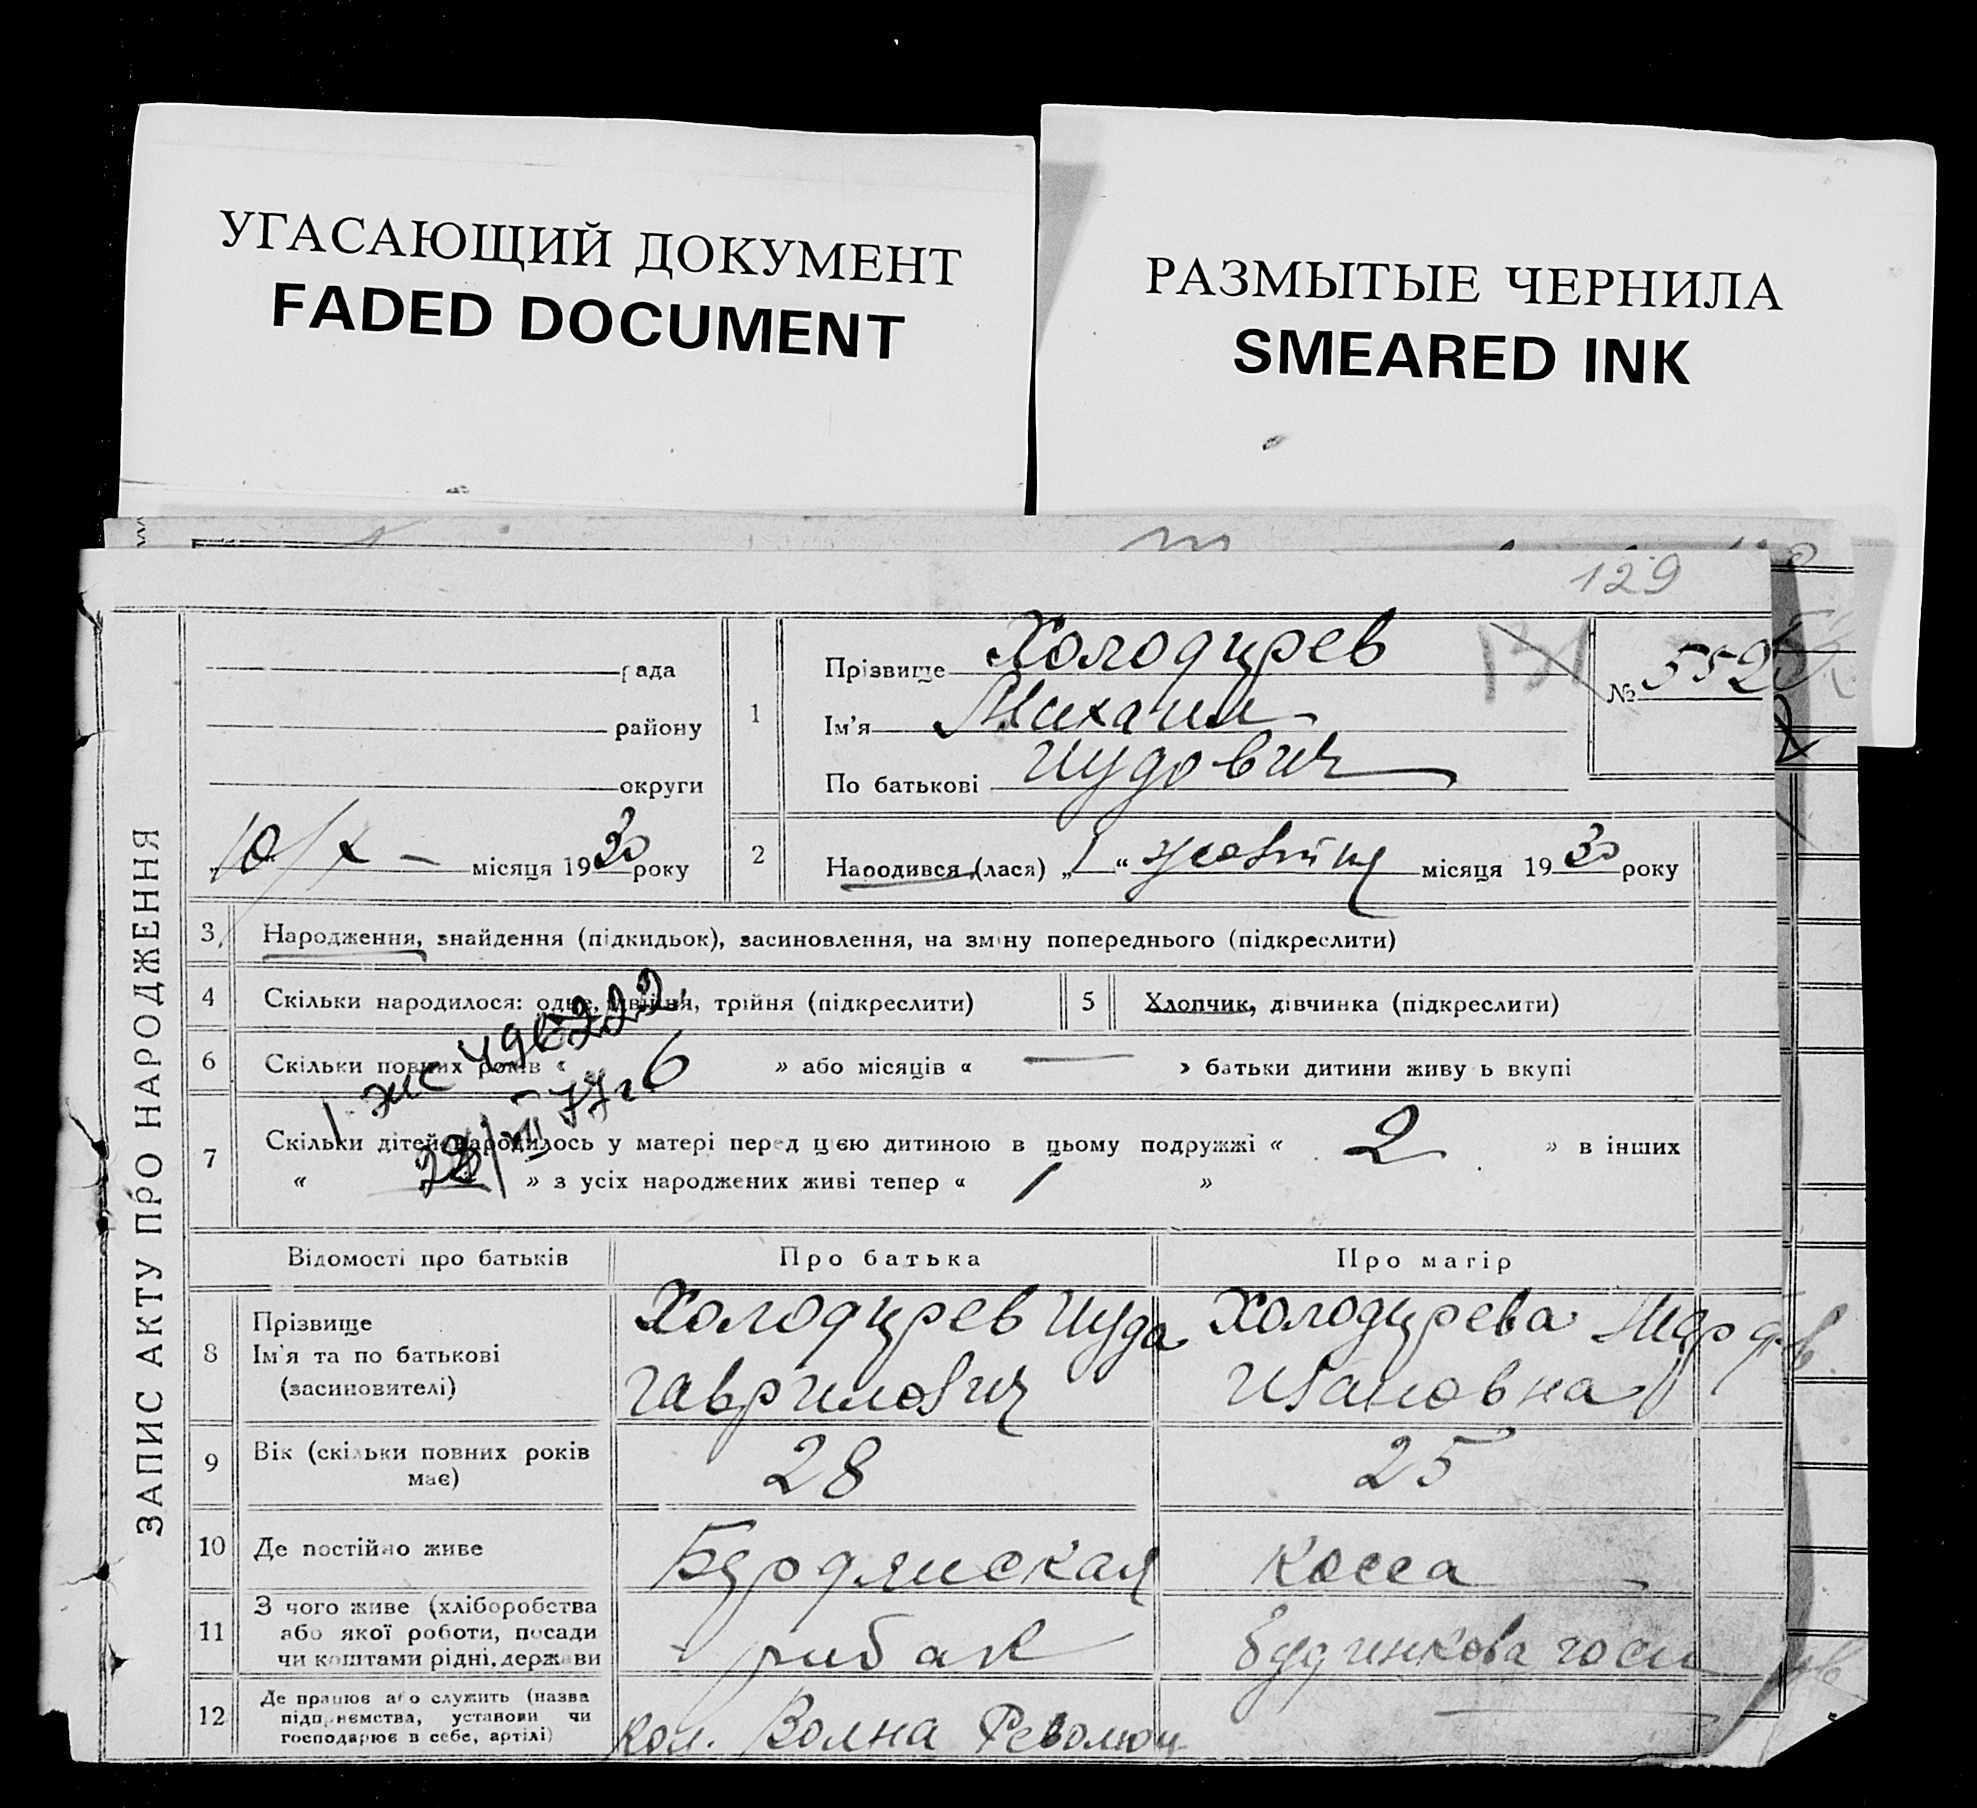 УГАСАЮЩИЙ ДОКУМЕНТ
FADED DOCUMENT
РАЗМЫТЫЕ ЧЕРНИЛА
SMEARED INK
129
ЗАПИС АКТУ ПРО НАРОДЖЕННЯ
рада
району
округи
10/X — місяця 1930 року
1
Прізвище Холодцрев
Ім'я Михаил
По батькові Иудович
131
№ 552
2 Народився (лася) „1“ жовтня місяця 1930 року
3 Народження, знайдення (підкидьок), засиновлення, на зміну попереднього (підкреслити)
4 Скільки народилося: одне, двійня, трійня (підкреслити)
5 Хлопчик, дівчинка (підкреслити)
6 Скільки повних років « 6 » або місяців « — » батьки дитини живуть вкупі
7 Скільки дітей народилось у матері перед цією дитиною в цьому подружжі « 2 » в інших
« » з усіх народжених живі тепер « 1 »
Відомості про батьків Про батька Про матір
8 Прізвище
Ім'я та по батькові
(засиновителі)
Холодцрев Иуда
Гаврилович
Холодцрева
Ивановна
9 Вік (скільки повних років має) 28 25
10 Де постійно живе Бердянская косса
11 З чого живе (хліборобства
або якої роботи, посади
чи коштами рідні, держави
рибак
12 Де працює або служить (назва
підприємства, установи чи
господарює в себе, артілі)
кол. Волна Революц